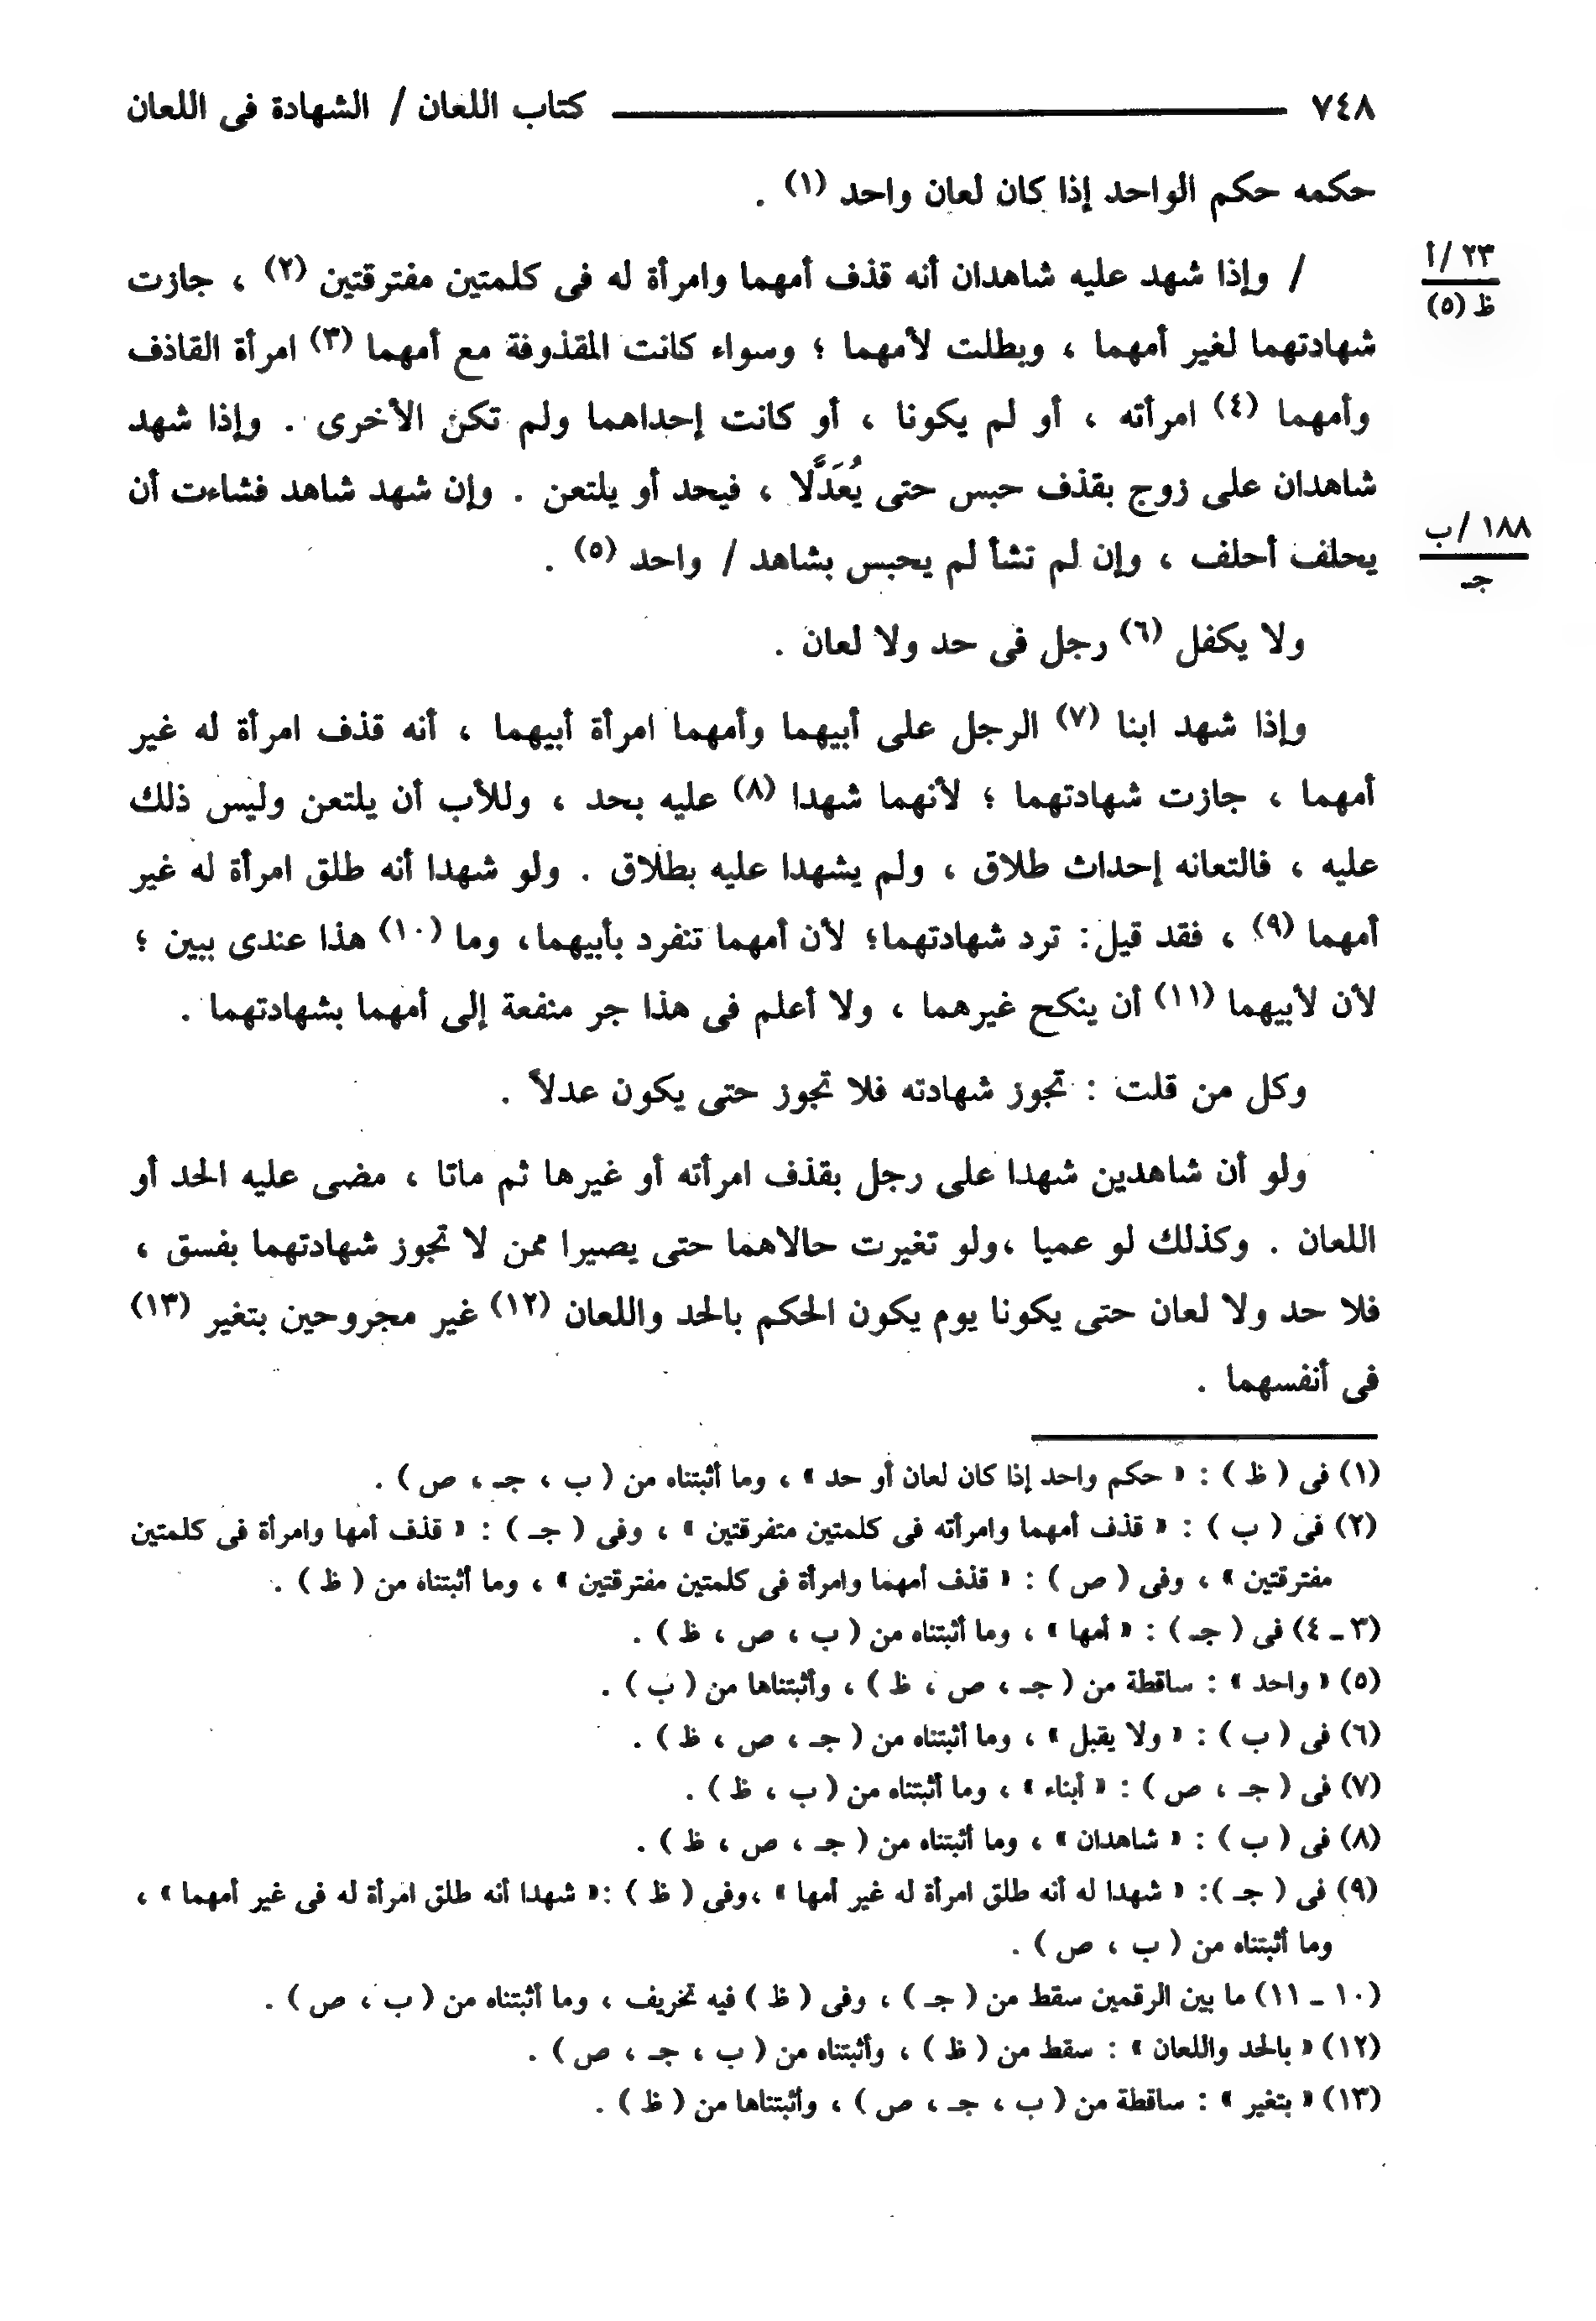 ٧٤٨ ـــــــ كتاب اللعان / الشهادة فى اللعان
حكمه حكم الواحد إذا كان لعان واحد (١) .
٢٣ /أ
ظ (٥)
/ وإذا شهد عليه شاهدان أنه قذف أمهما وامرأة له فى كلمتين مفترقتين (٢) ، جازت
شهادتهما لغير أمهما ، وبطلت لأمهما ؛ وسواء كانت المقذوفة مع أمهما (٣) امرأة القاذف
وأمهما (٤) امرأته ، أو لم يكونا ، أو كانت إحداهما ولم تكن الأخرى . وإذا شهد
شاهدان على زوج بقذف حبس حتى يُعَدَّلا ، فيحد أو يلتعن . وإن شهد شاهد فشاءت أن
١٨٨ /ب
جـ
يحلف أحلف ، وإن لم تشأ لم يحبس بشاهد / واحد (٥) .
ولا يكفل (٦) رجل فى حد ولا لعان .
وإذا شهد ابنا (٧) الرجل على أبيهما وأمهما امرأة أبيهما ، أنه قذف امرأة له غير
أمهما ، جازت شهادتهما ؛ لأنهما شهدا (٨) عليه بحد ، وللأب أن يلتعن وليس ذلك
عليه ، فالتعانه إحداث طلاق ، ولم يشهدا عليه بطلاق . ولو شهدا أنه طلق امرأة له غير
أمهما (٩) ، فقد قيل: ترد شهادتهما؛ لأن أمهما تنفرد بأبيهما، وما (١٠) هذا عندى ببين ؛
لأن لأبيهما (١١) أن ينكح غيرهما ، ولا أعلم فى هذا جر منفعة إلى أمهما بشهادتهما .
وكل من قلت : تجوز شهادته فلا تجوز حتى يكون عدلاً .
ولو أن شاهدين شهدا على رجل بقذف امرأته أو غيرها ثم ماتا ، مضى عليه الحد أو
اللعان . وكذلك لو عميا ،ولو تغيرت حالاهما حتى يصيرا ممن لا تجوز شهادتهما بفسق ،
فلا حد ولا لعان حتى يكونا يوم يكون الحكم بالحد واللعان (١٢) غير مجروحين بتغير (١٣)
فى أنفسهما .
(١) فى ( ظ ) : « حكم واحد إذا كان لعان أو حد » ، وما أثبتناه من ( ب ، جـ ، ص ) .
(٢) فى ( ب ) : « قذف أمهما وامرأته فى كلمتين متفرقتين » ، وفى ( جـ ) : « قذف أمها وامرأة فى كلمتين
مفترقتين » ، وفى ( ص ) : « قذف أمهما وامرأة فى كلمتين مفترقتين » ، وما أثبتناه من ( ظ ) .
(٣ ـ ٤) فى ( جـ ) : « أمها » ، وما أثبتناه من ( ب ، ص ، ظ ) .
(٥) « واحد » : ساقطة من ( جـ ، ص ، ظ ) ، وأثبتناها من ( ب ) .
(٦) فى ( ب ) : « ولا يقبل » ، وما أثبتناه من ( جـ ، ص ، ظ ) .
(٧) فى ( جـ ، ص ) : « أبناء » ، وما أثبتناه من ( ب ، ظ ) .
(٨) فى ( ب ) : « شاهدان » ، وما أثبتناه من ( جـ ، ص ، ظ ) .
(٩) فى ( جـ ): « شهدا له أنه طلق امرأة له غير أمها » ،وفى ( ظ ) :« شهدا أنه طلق امرأة له فى غير أمهما » ،
وما أثبتناه من ( ب ، ص ) .
(١٠ ـ ١١) ما بين الرقمين سقط من ( جـ ) ، وفى ( ظ ) فيه تخريف ، وما أثبتناه من ( ب ، ص ) .
(١٢) « بالحد واللعان » : سقط من ( ظ ) ، وأثبتناه من ( ب ، جـ ، ص ) .
(١٣) « بتغير » : ساقطة من ( ب ، جـ ، ص ) ، وأثبتناها من ( ظ ) .